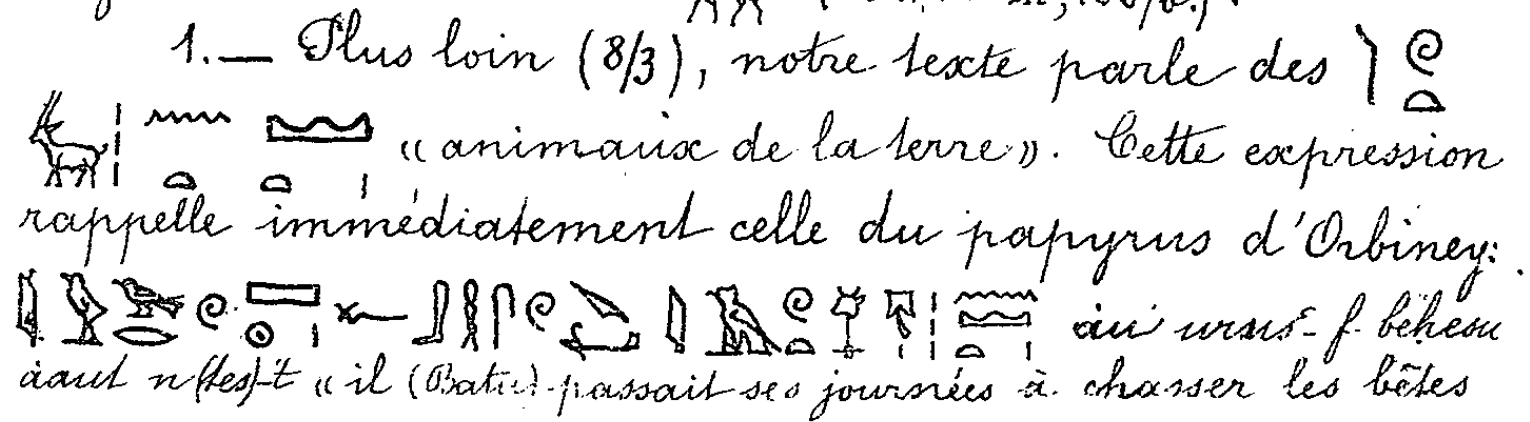 1. — Plus loin (8/3), notre texte parle des
« animaux de la terre ». Cette expression
rappelle immédiatement celle du papyrus d'Orbiney:
àu ursu-f beḥesu
àaut n(tes)-t « il (Batu) passait ses journées à chasser les bêtes